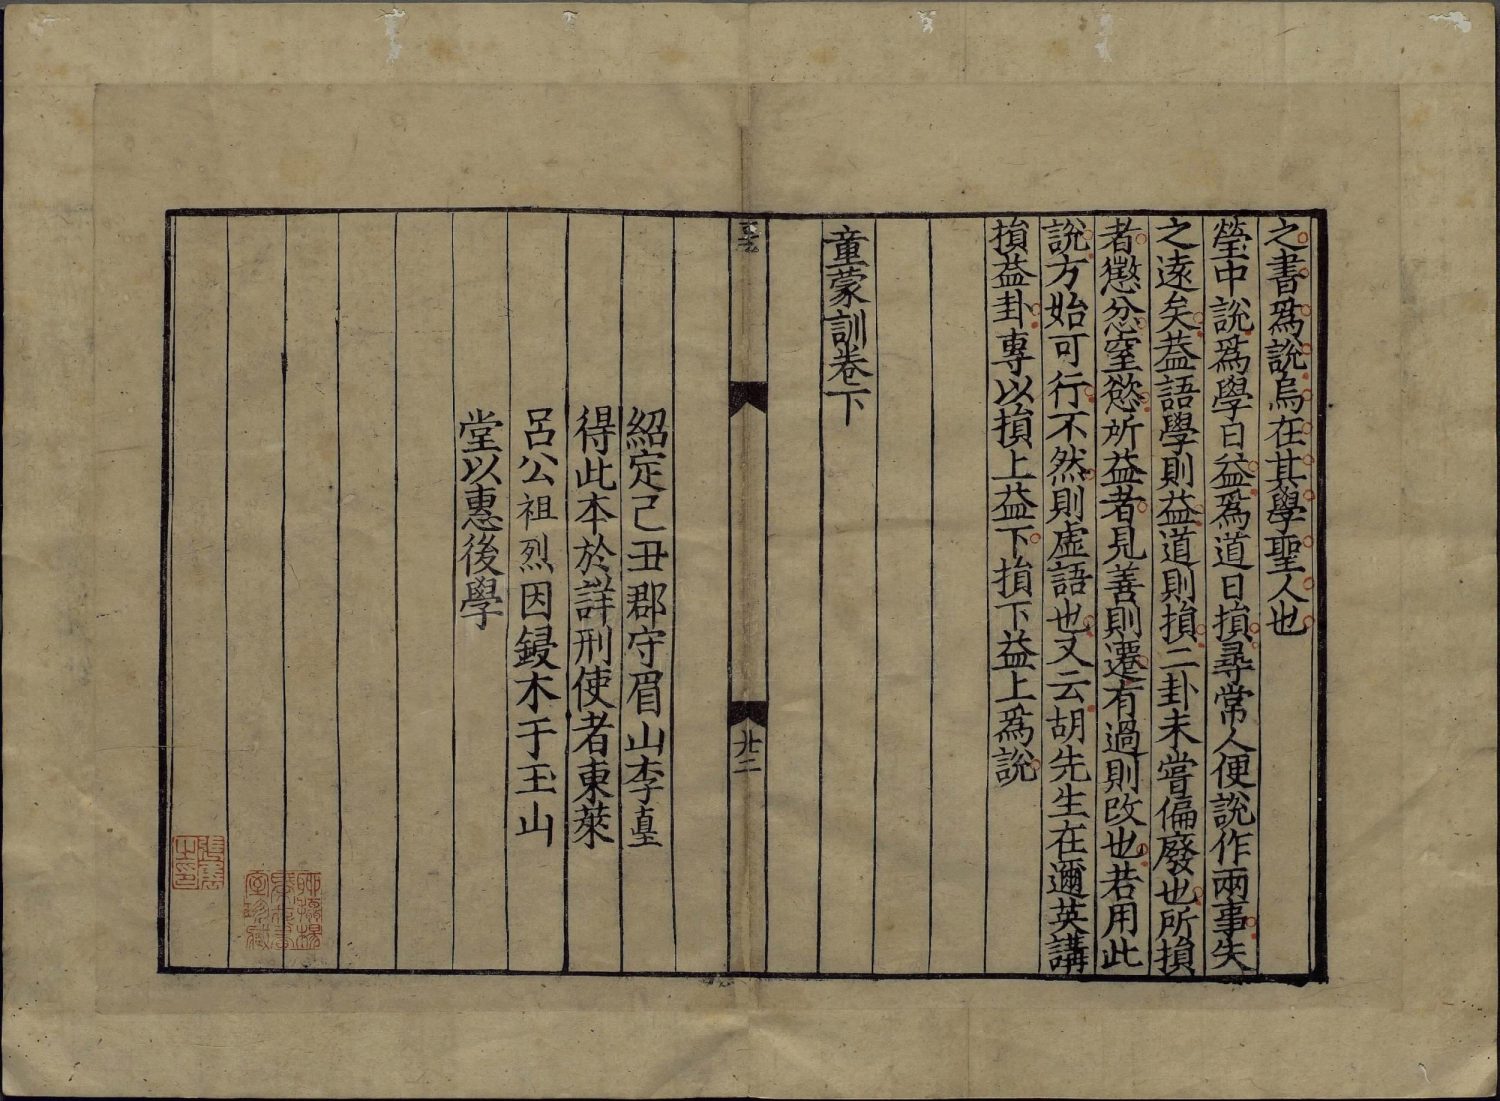 之書爲說烏在其學聖人也
瑩中說爲學日益爲道日損尋常人便說作兩事失
之遠矣葢語學則益道則損二卦未嘗偏廢也所損
者懲忿窒慾所益者見善則遷有過則改也若用此
說方始可行不然則虛語也又云胡先生在邇英講
損益卦專以損上益下損下益上爲說
童蒙訓卷下
廿二
紹定己丑郡守眉山李𡌴
得此本於詳刑使者東萊
呂公祖烈因鋟木于玉山
堂以惠後學